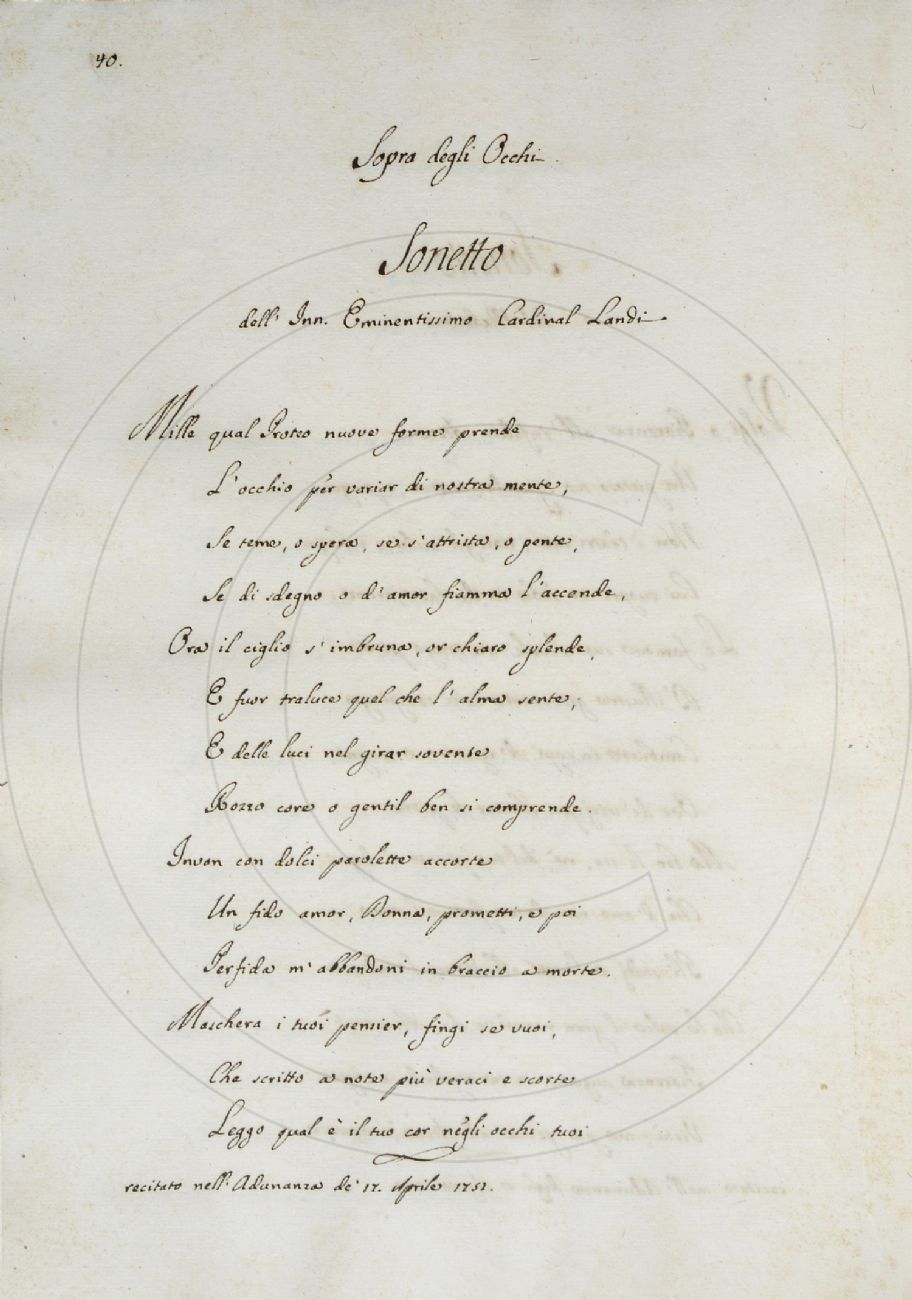 40.
Sopra degli Occhi.
Sonetto
dell' Inn. Eminentissimo Cardinal Landi
Mille qual Proteo nuove forme prende
L'occhio per variar di nostra mente,
Se teme, o spera, se s'attrista, o pente,
Se di sdegno o d'amor fiamma l'accende,
Ora il ciglio s'imbruna, or chiaro splende,
E fuor traluce quel che l'alma sente;
E delle luci nel girar sovente
Rozzo core o gentil ben si comprende.
Invan con dolci parolette accorte
Un fido amor, Donna, prometti, e poi
Perfida m'abbandoni in braccio a morte.
Maschera i tuoi pensier, fingi se vuoi,
Che scritto a note più veraci e scorte
Leggo qual è il tuo cor negli occhi tuoi
recitato nell'Adunanza de' 17. Aprile 1751.